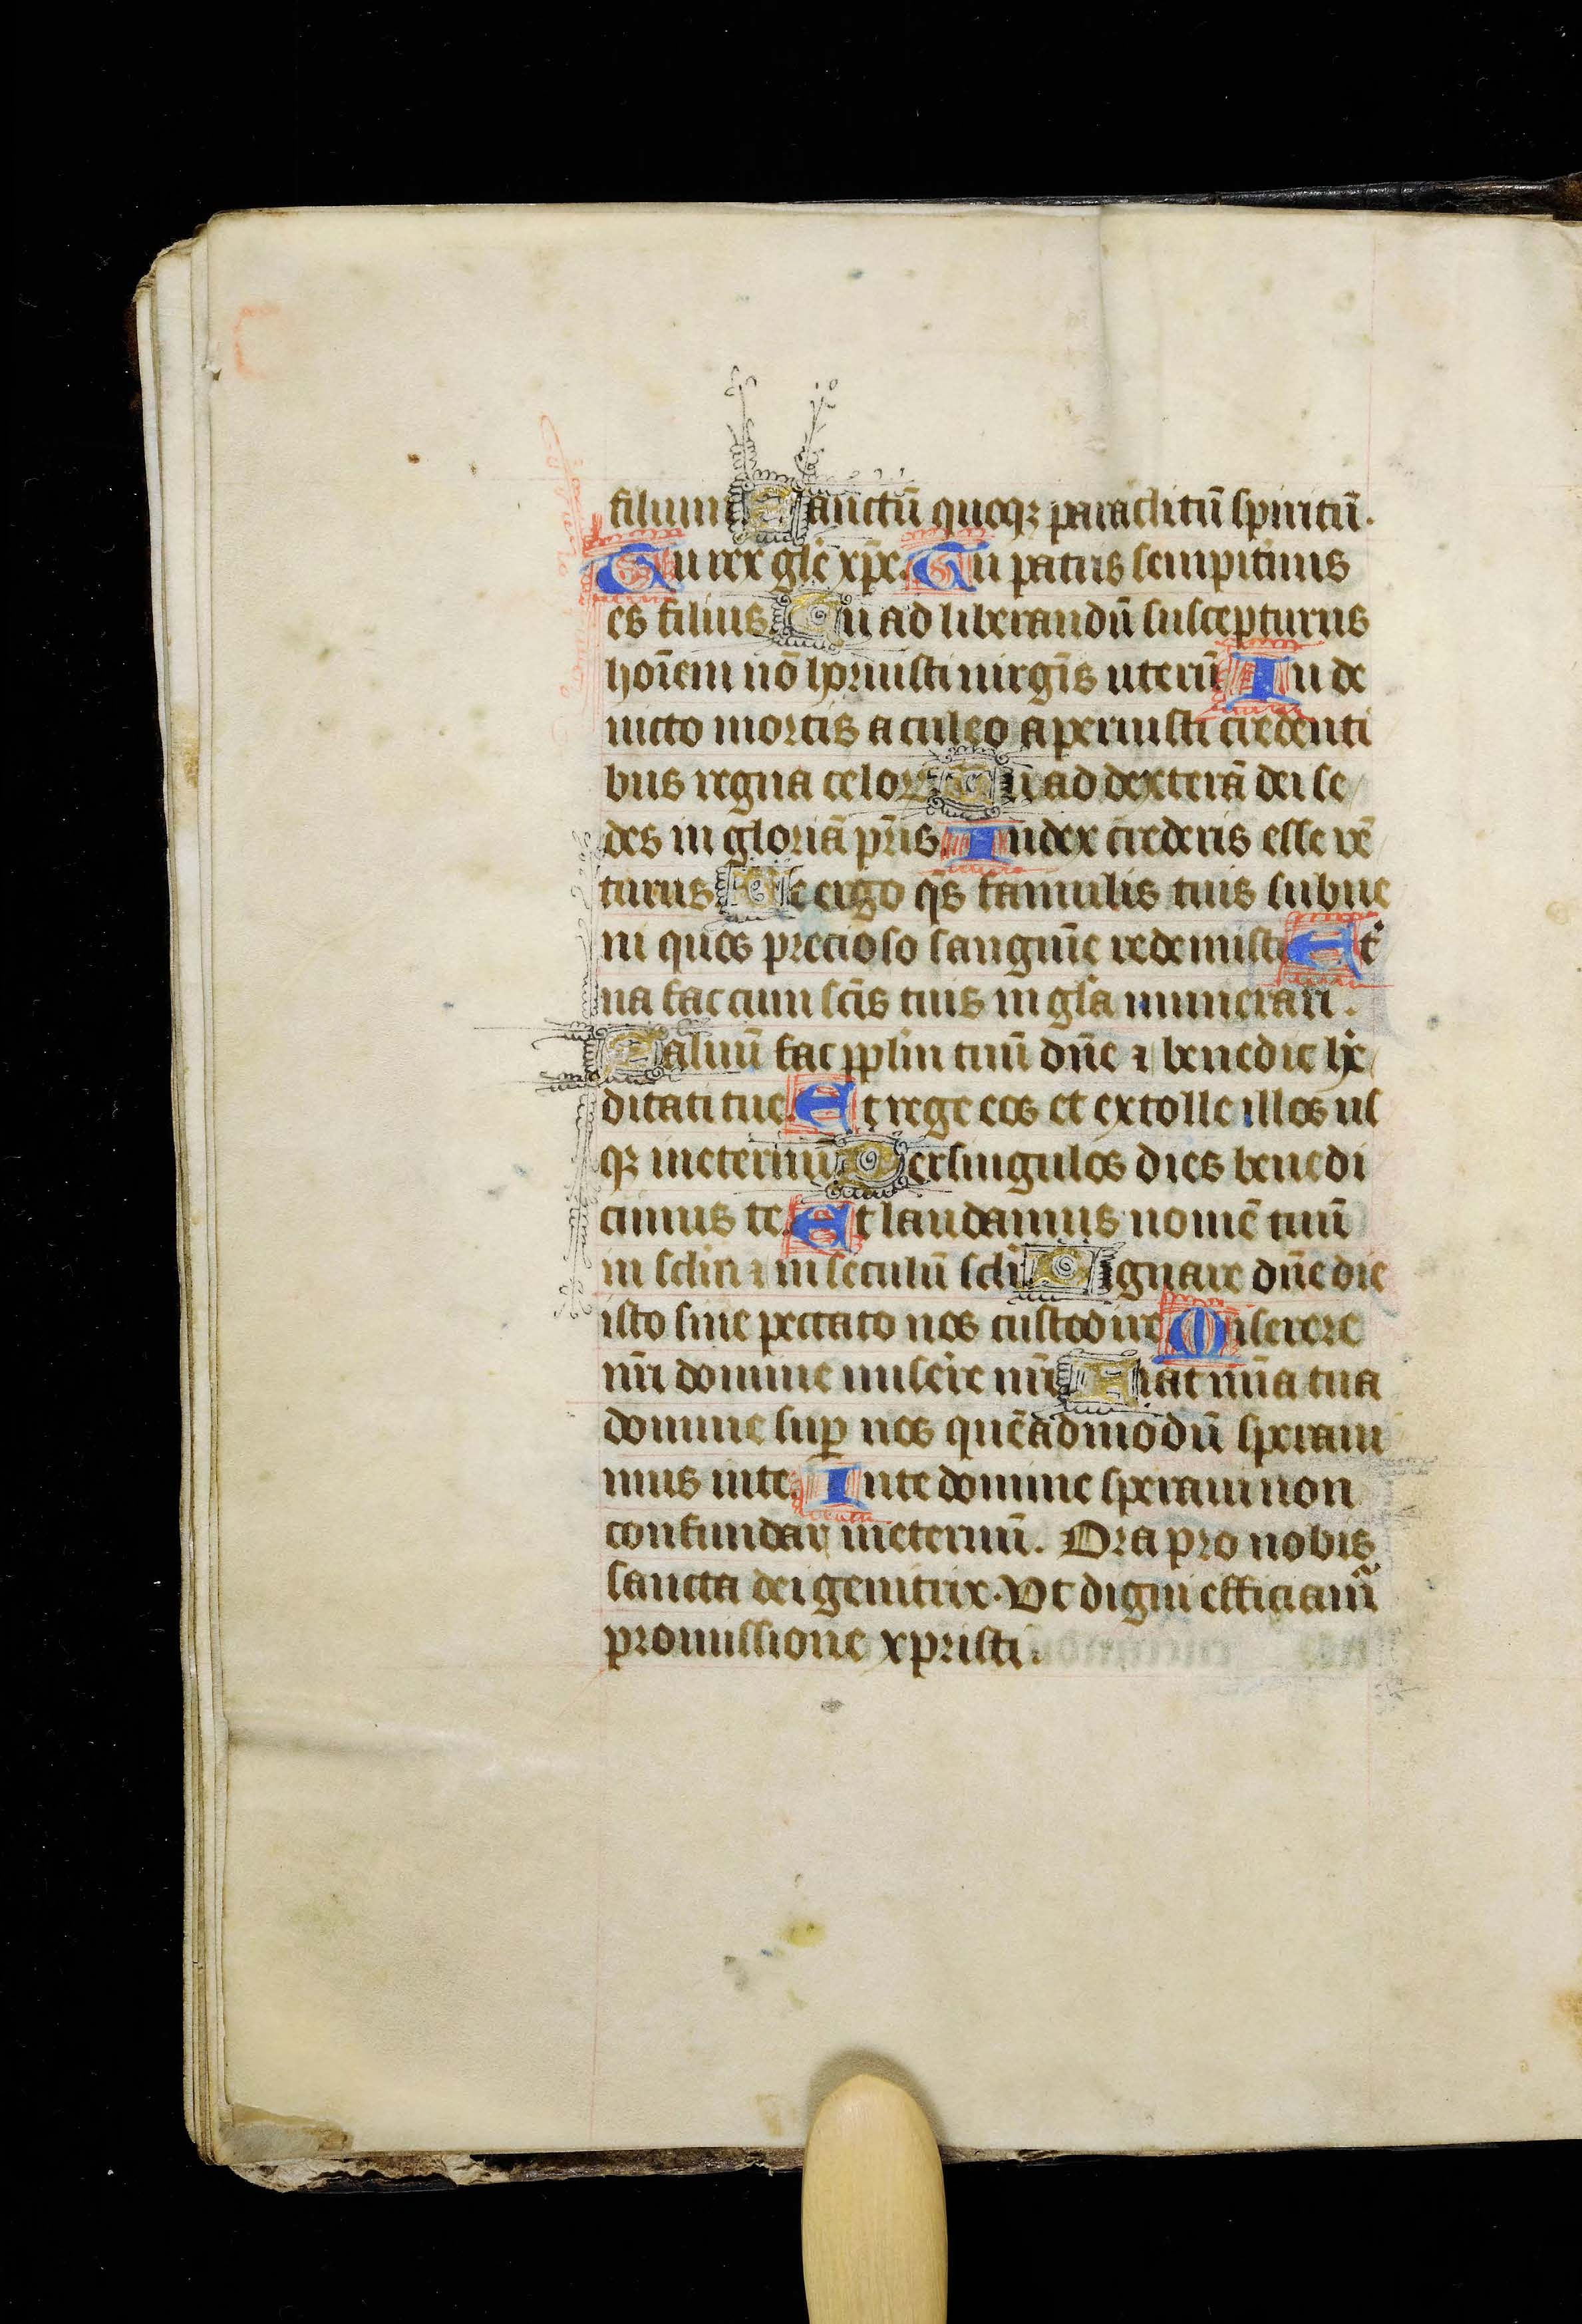 filium Sanctū quoqꝫ paraclitū spiritū.
Tu rex gl̄e xp̄e. Tu patris sempit̄nus
es filius. Tu ad liberandū suscepturus
hoīem nō horruisti uirgīs uterū Tu de
uicto mortis aculeo aperuisti credenti
bus regna celoꝝ Tu ad dexterā dei se
des in gloriā pr̄is. Iudex crederis esse vē
turus Te ergo q̄s famulis tuis subue
ni quos precioso sanguīe redemisti Et̄
na fac cum sc̄is tuis in gl̄a numerari.
Saluū fac pplm̄ tuū dn̄e ⁊ benedic he
ditati tue. Et rege eos et extolle illos us
qꝫ ineternū Per singulos dies benedi
cimus te. Et laudamus nomē tuū
in sclm̄ ⁊ in seculū scli Dignare dn̄e die
isto sine peccato nos custodire Miserere
nr̄i domine miser̄e nr̄i Fiat mīa tua
domine suꝑ nos quēadmodū speraui
mus inte. Inte domine speraui non
confundar ineternū. Ora pro nobis
sancta dei genitrix. Vt digni efficiam̄
promissione xpristi.